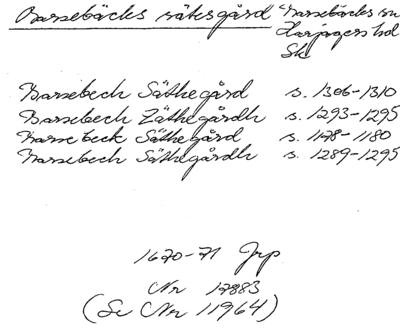 Barsebäcks sätesgård Barsebäcks sn
Harjagers hd
Sk
Barsebech Säthegård s. 1306-1310
Barsebech Zäthegårdh s. 1293-1295
Barsebeck Säthegård s. 1178-1180
Barsebech Säthegårdh s. 1289-1295
1670-71 Jrp
Nr 17883
(Se Nr 11964)